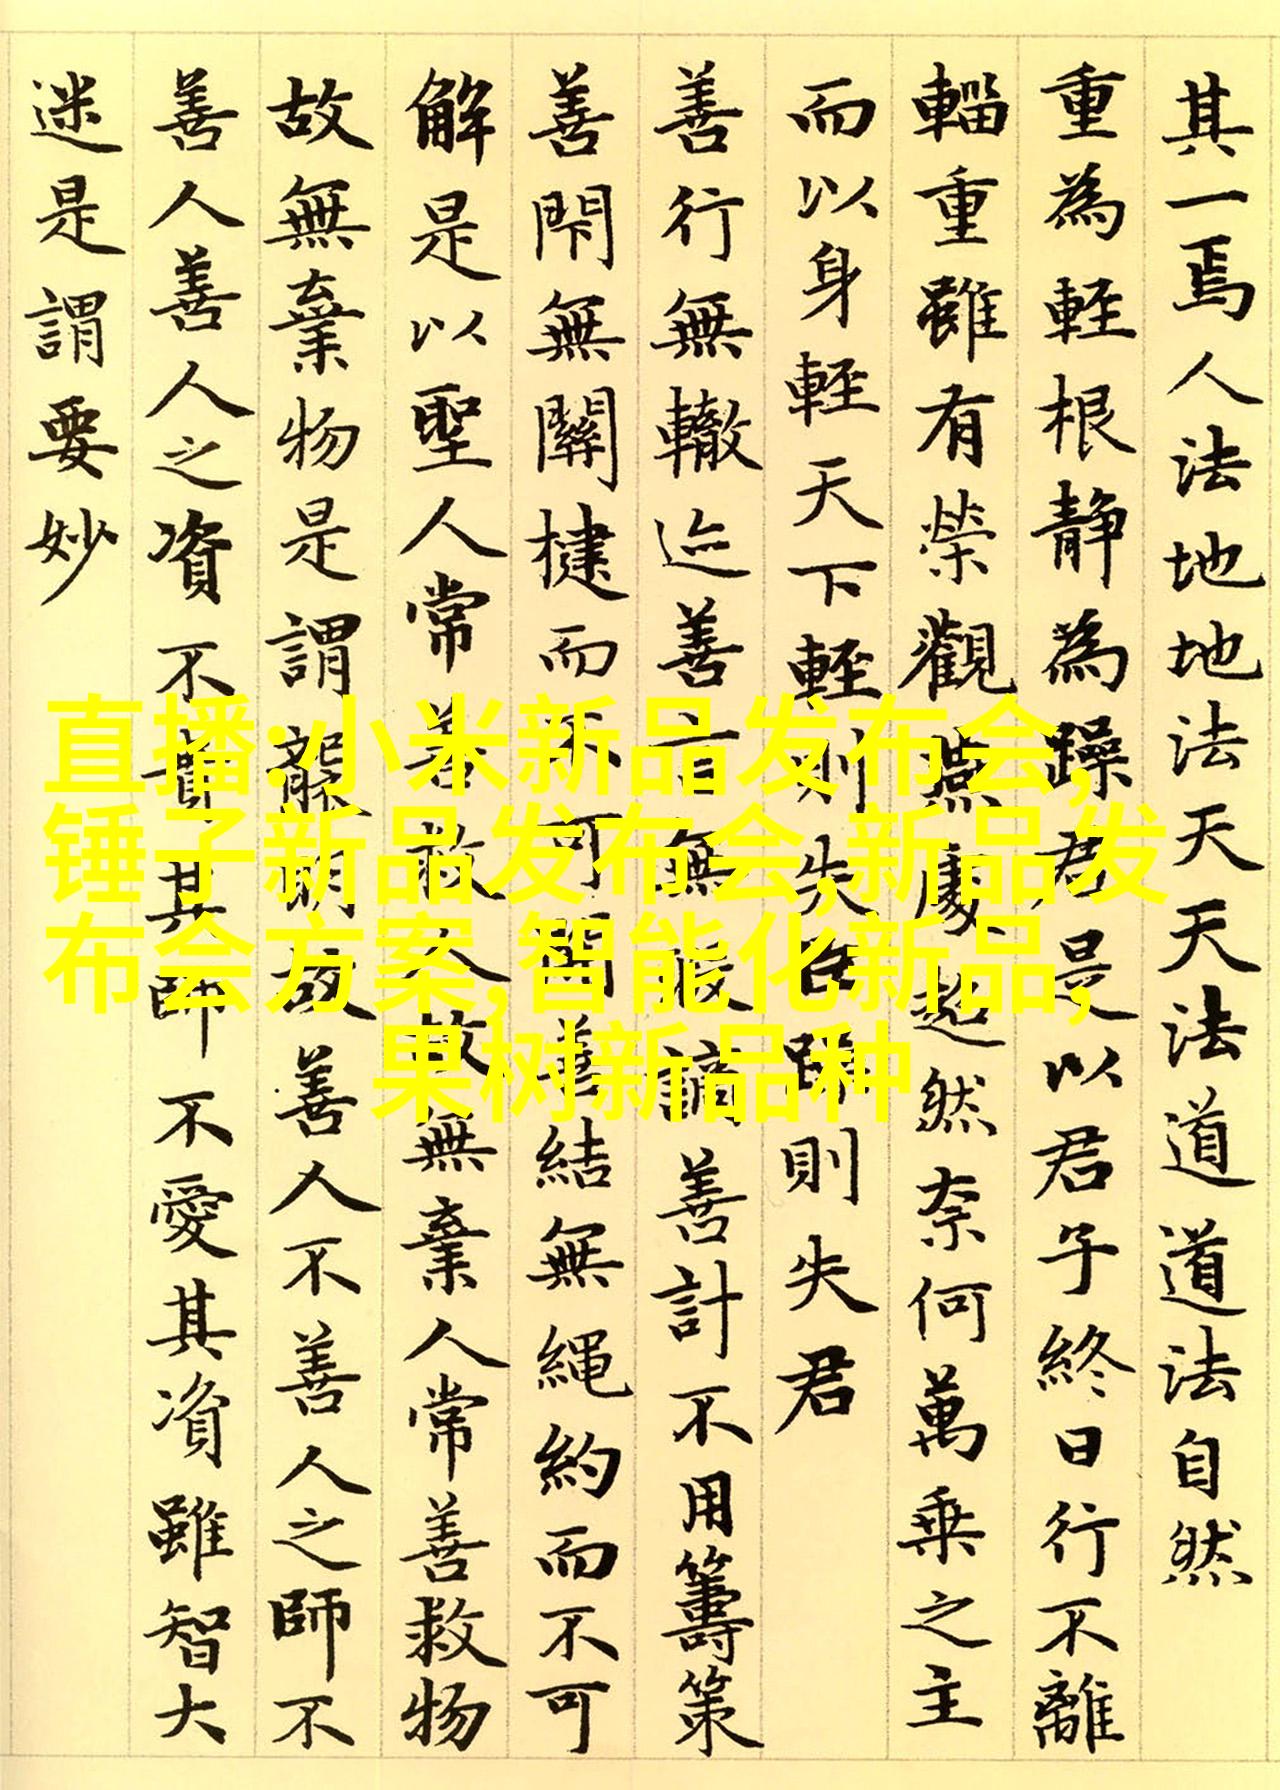 其一焉人法地地法天天法道道法自然
重為輕根静為躁君是以君子終日行不離
輜重雖有榮觀燕處超然奈何萬乘之主
而以身輕天下輕則失臣躁則失君
善行無轍迹善言無瑕謫善計不用籌策
善閇無關楗而不可開善結無繩約而不可
解是以聖人常善救人故無棄人常善救物
故無棄物是謂襲明故善人不善人之師不
善人善人之資不貴其師不愛其資雖智大
迷是謂要妙
直播:小米新品发布会,
锤子新品发布会,新品发
布会方案,智能化新品,
果树新品种